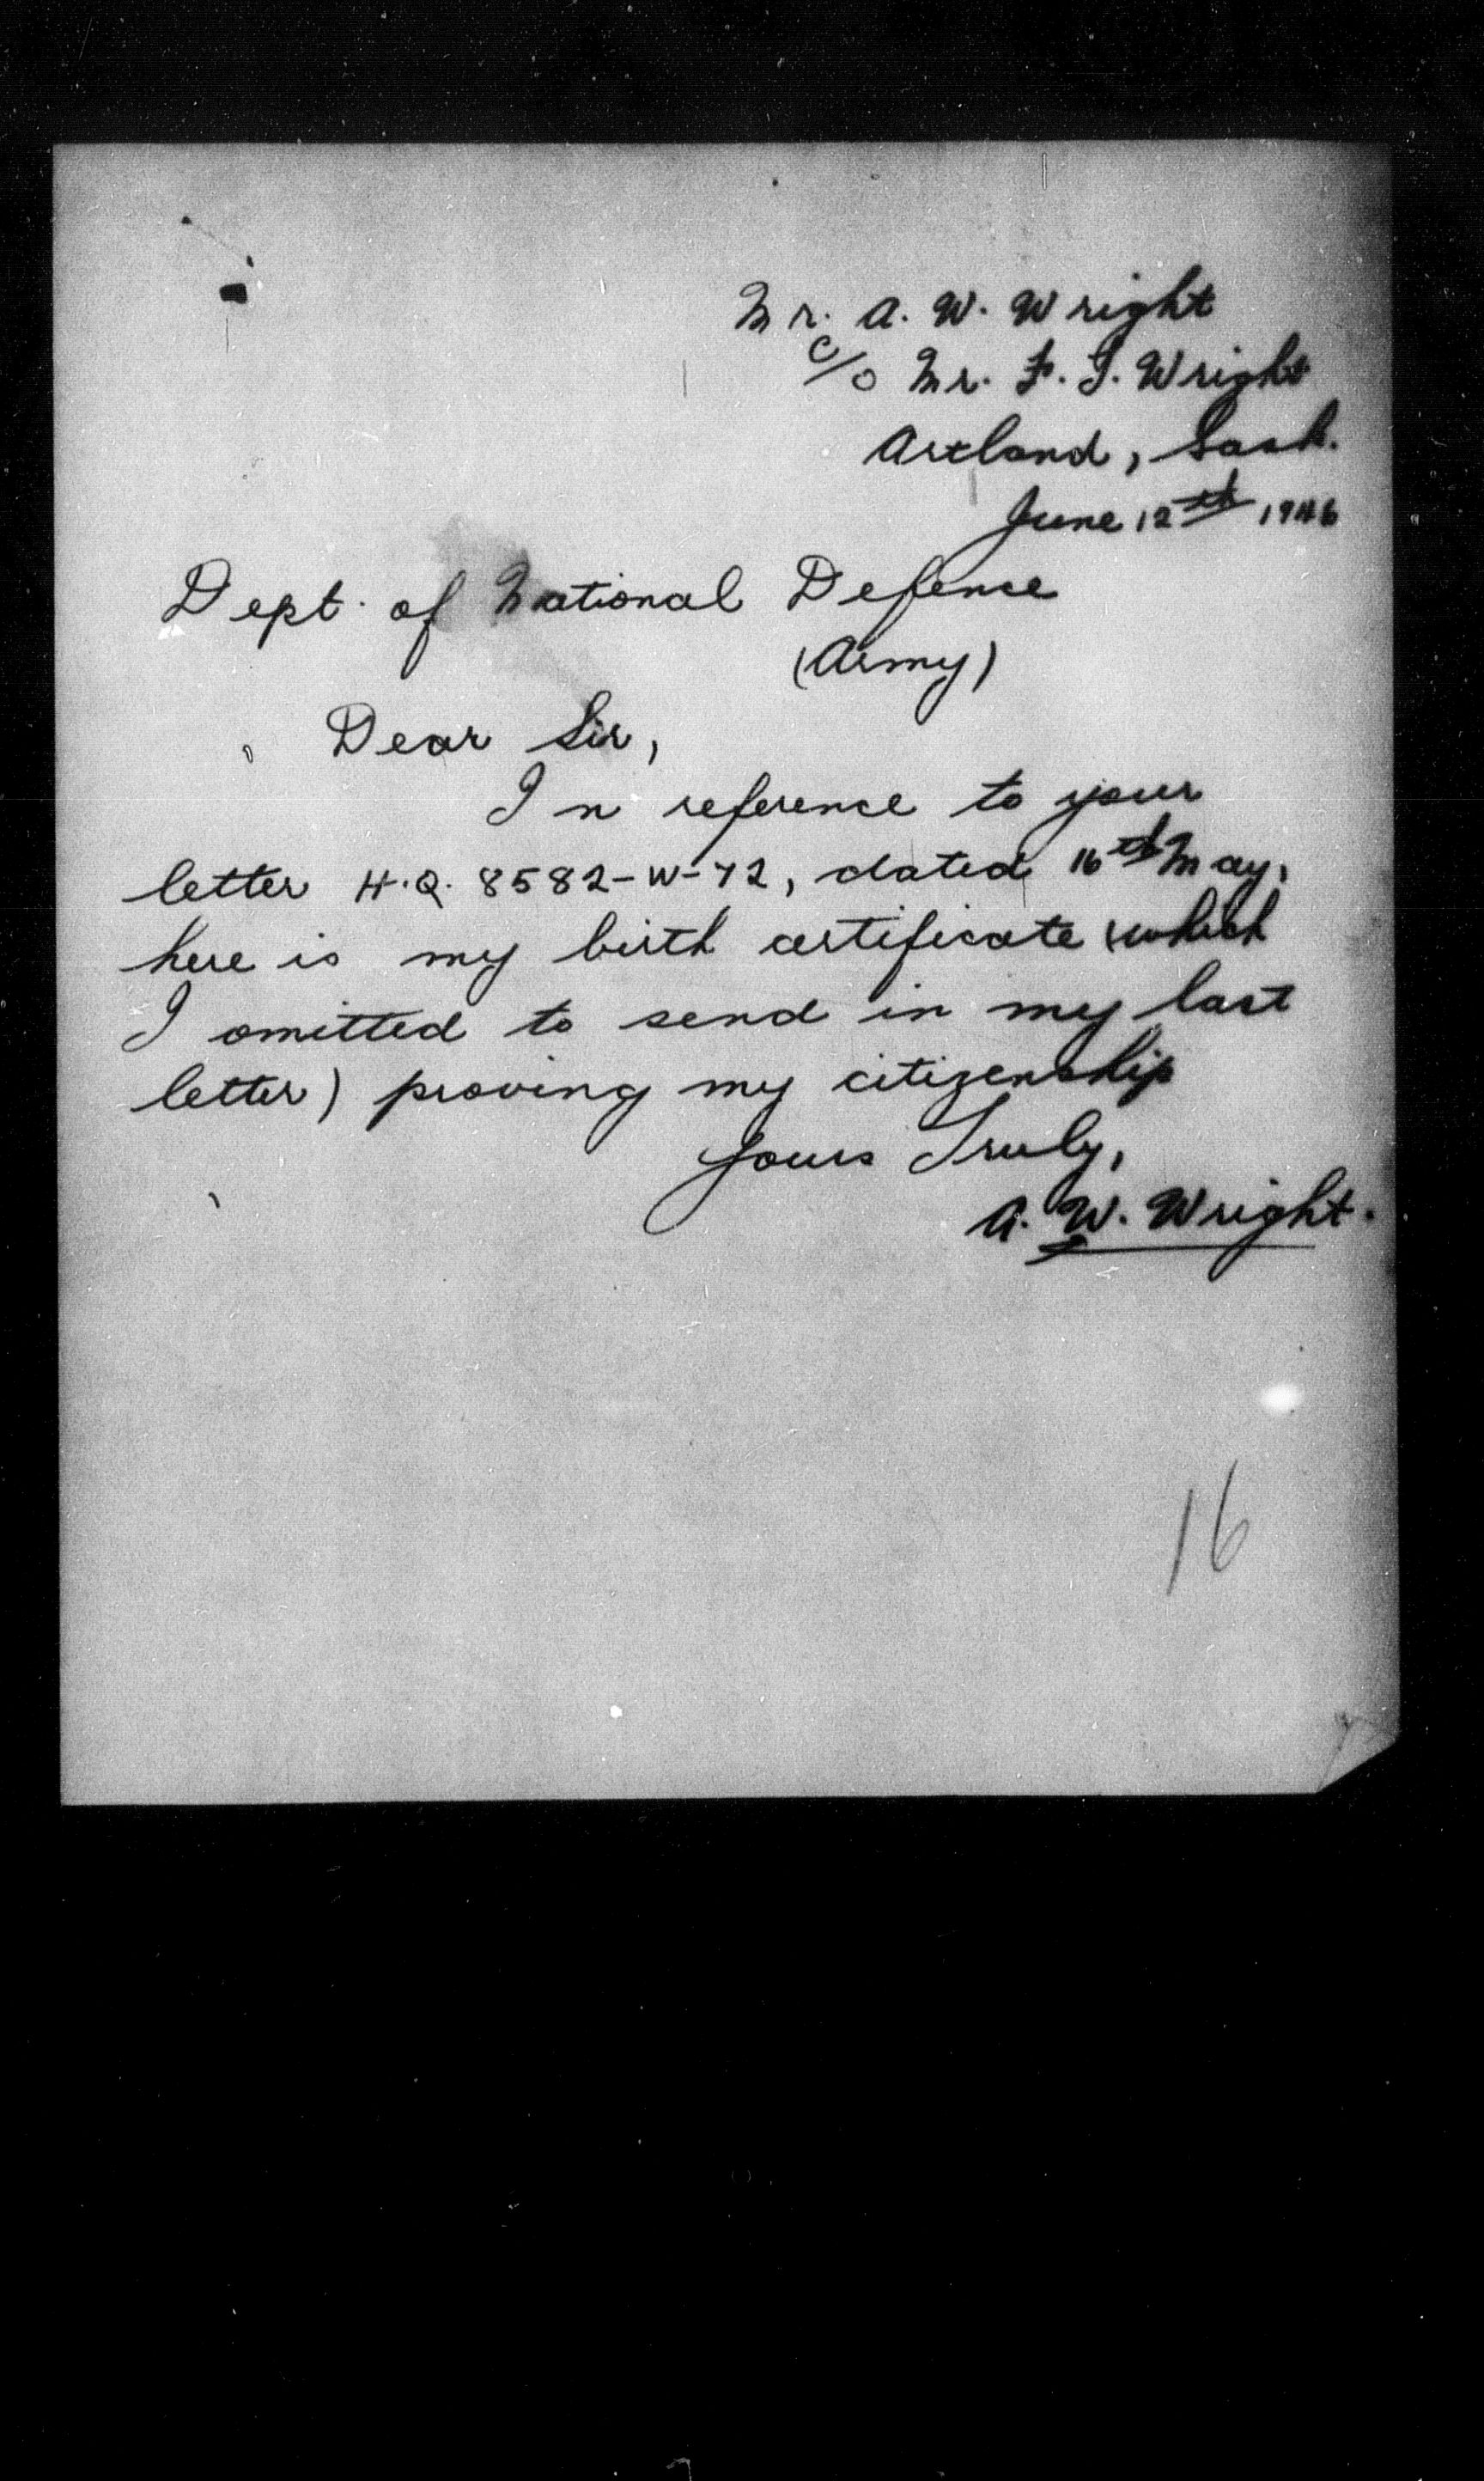 Mr. A. W. Wright
c/o Mr. F. J. Wright
Artland, Sask.
June 12th 1946
Dept. of National Defence
(Army)
Dear Sir,
In reference to your
letter H.Q. 8582-W-72, dated 16th May,
here is my birth certificate (which
I omitted to send in my last
letter) proving my citizenship
Yours Truly,
A. W. Wright.
16